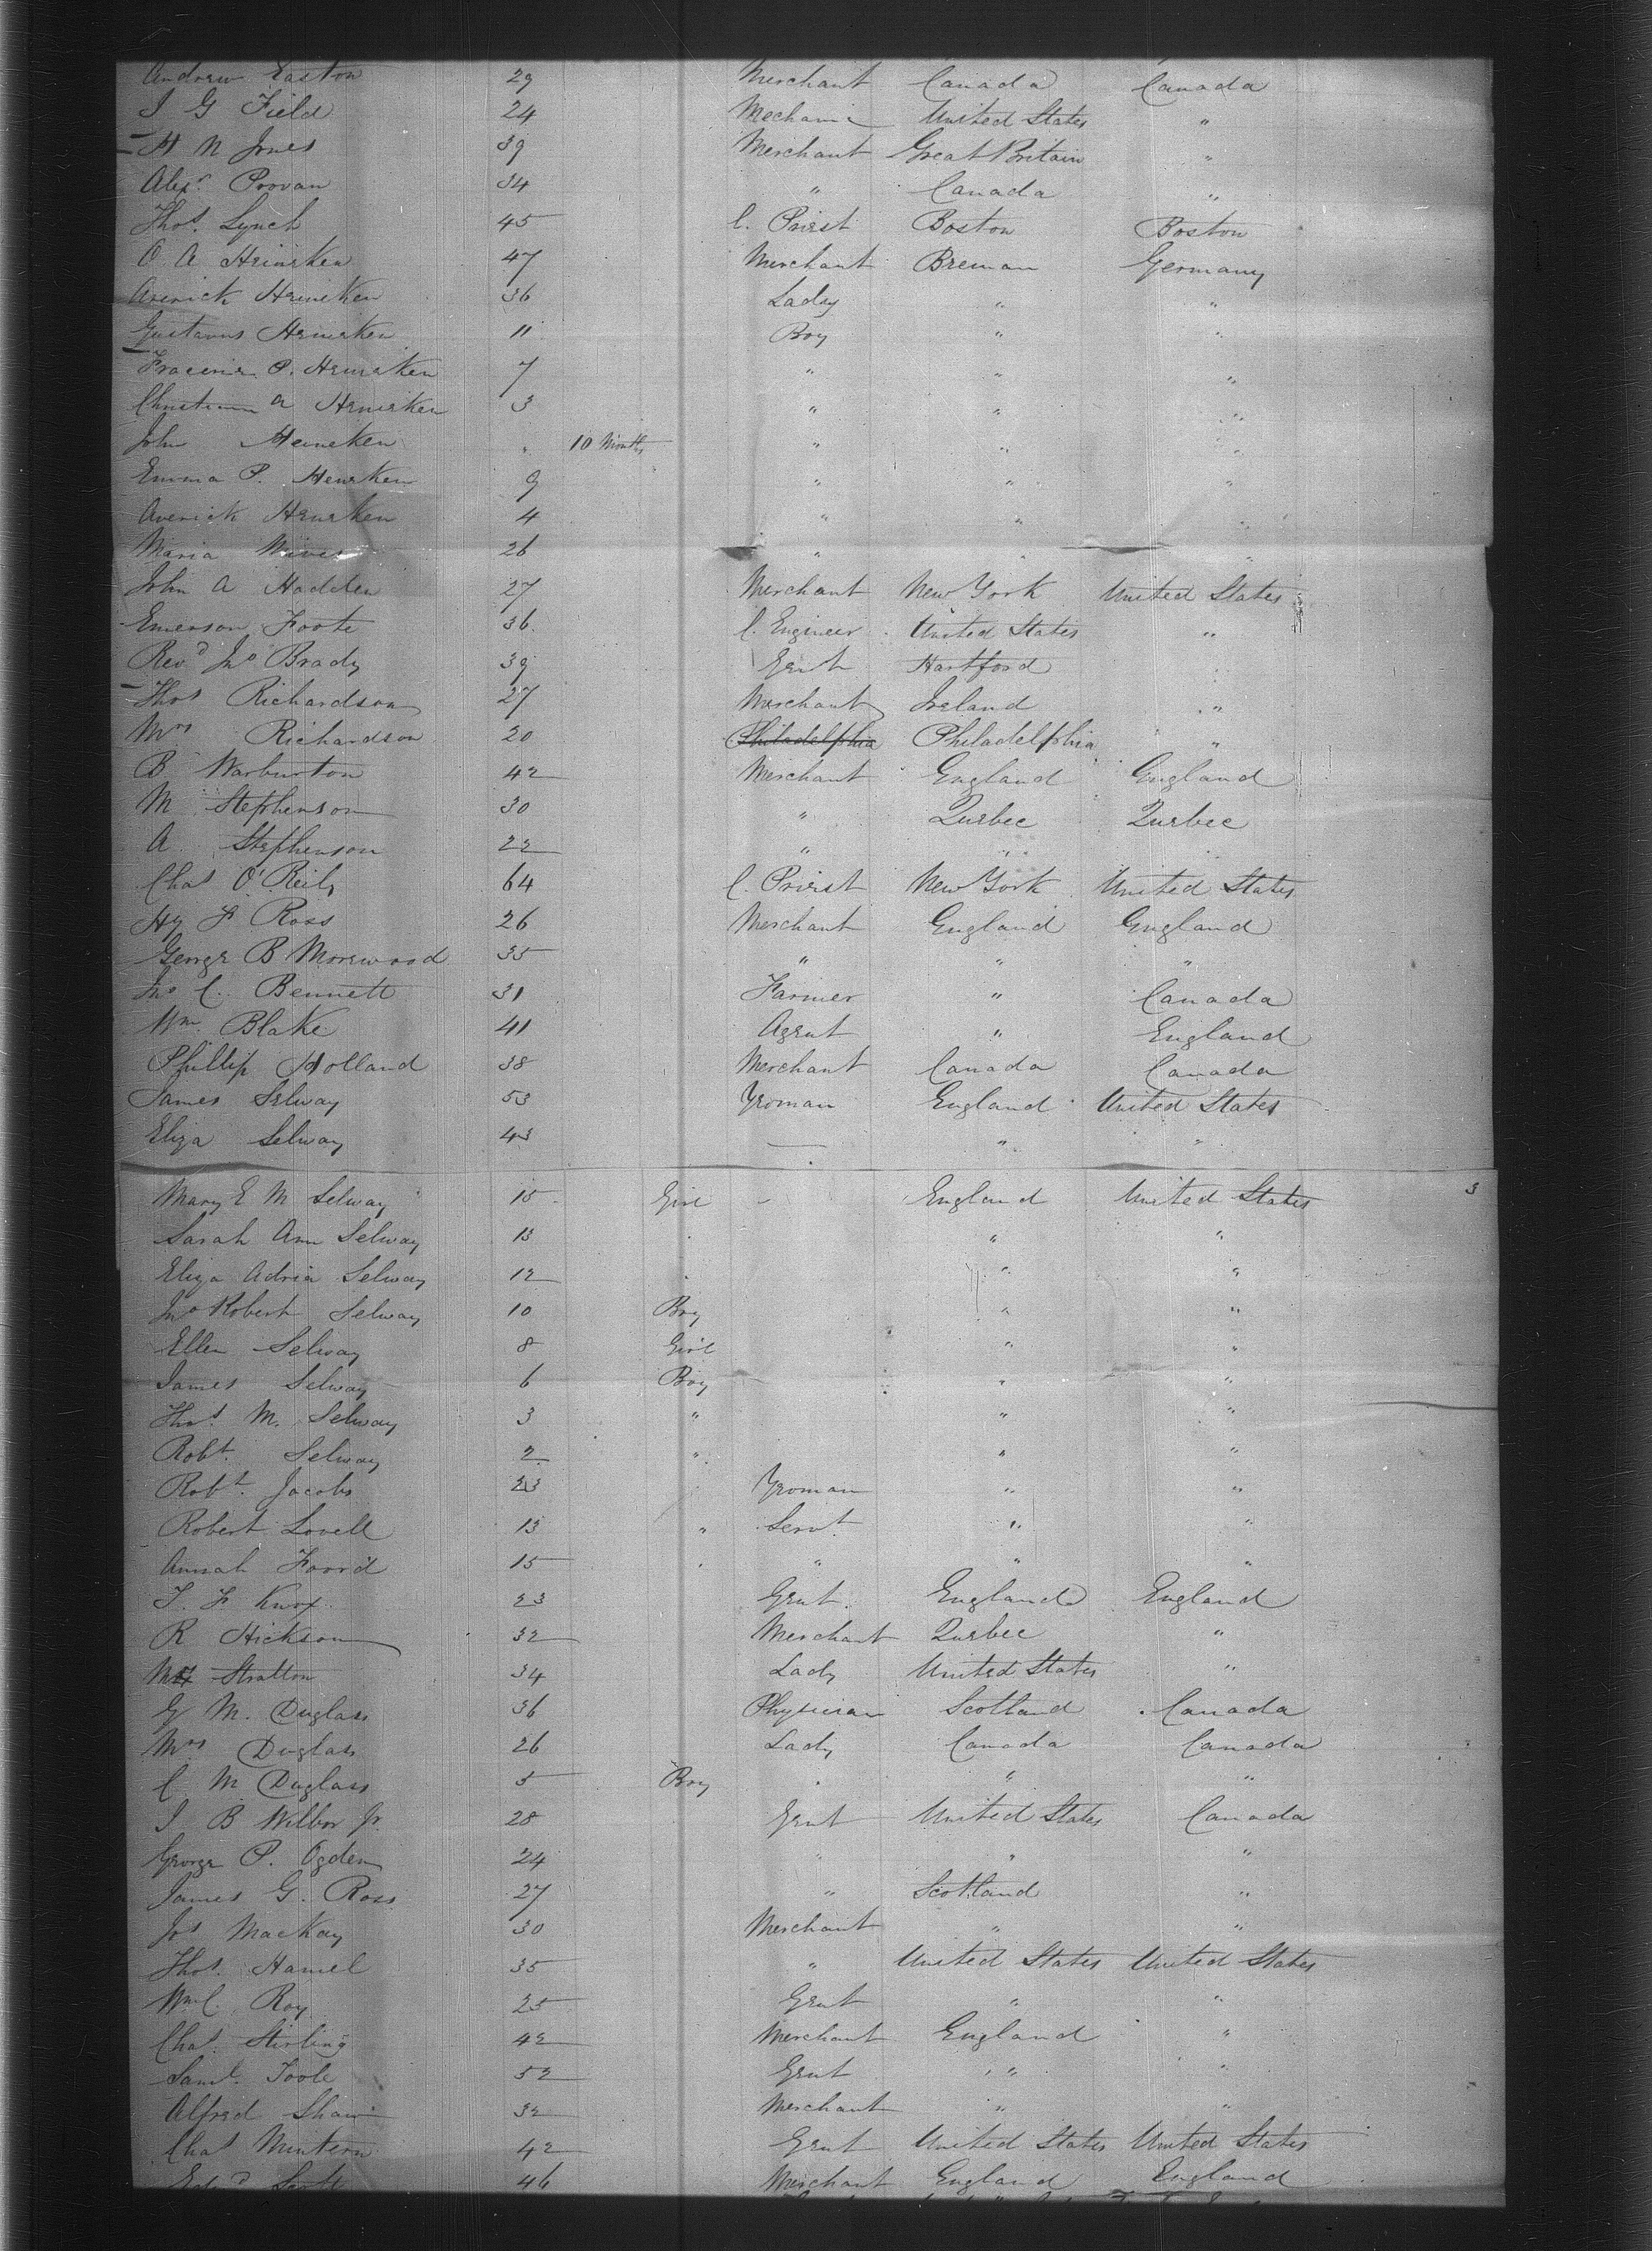 Andrew Easton 29 Merchant Canada Canada
J G Field 24 Mechanic United States "
H N Jones 39 Merchant Great Britain "
Alexr. Provan 34 " Canada "
Thos. Lynch 45 C. Priest Boston Boston
O A Heineken 47 Merchant Breman Germany
Averick Heineken 36 Lady " "
Gustavus Heineken 11 Boy " "
P. Heineken 7 " " "
A Heineken 3 " " "
John Heineken " 10 Months " " "
Emma P. Heineken 9 " " "
Averick Heineken 4 " " "
Maria 26 " " "
John A Hadden 27 Merchant New York United States
Emerson Foote 36 C. Engineer United States "
Revd Jno Brady 39 Gent Hartford "
Thos Richardson 27 Merchant Ireland "
Mrs Richardson 20 Philadelphia Philadelphia "
B Warburton 42 Merchant England England
M Stephenson 30 " Quebec Quebec
A Stephenson 22 " " "
Chas O'Reily 64 C. Priest New York United States
Hy F Ross 26 Merchant England England
George B Morewood 35 " " "
Jno C. Bennett 31 Farmer " Canada
Wm. Blake 41 Agent " England
Phillip Holland 38 Merchant Canada Canada
James Selway 53 Yeoman England United States
Eliza Selway 43 — " "
Mary E M Selway 15 Girl - England United States 3
Sarah Ann Selway 13 " " "
Eliza Adria Selway 12 " " "
Jno Robert Selway 10 Boy " "
Ellen Selway 8 Girl " "
James Selway 6 Boy " "
Thos. M. Selway 3 " " "
Robt. Selway 2 " " "
Robt. Jacobs 23 Yeoman " "
Robert Lovell 13 " Servt. " "
Annah Foord 15 " " " "
T. F. Knox 23 Gent. England England
R Hickson 32 Merchant Quebec "
Stratton 34 Lady United States "
G M. Duglass 36 Physician Scotland Canada
Mrs Duglass 26 Lady Canada Canada
C M Duglass 5 Boy " " "
J B Wilbor Jr. 28 Gent United States Canada
George P. Ogden 24 " " "
James G. Ross 27 " Scotland "
Jos MacKay 30 Merchant " "
Thos. Hamel 35 " United States United States
Wm C. Roy 25 Gent " "
Chas. Stirling 42 Merchant England "
Saml. Toole 52 Gent " "
Alfred Shaw 32 Merchant " "
Chas Mintern 42 Gent United States United States
Edwd Scott 46 Merchant England England